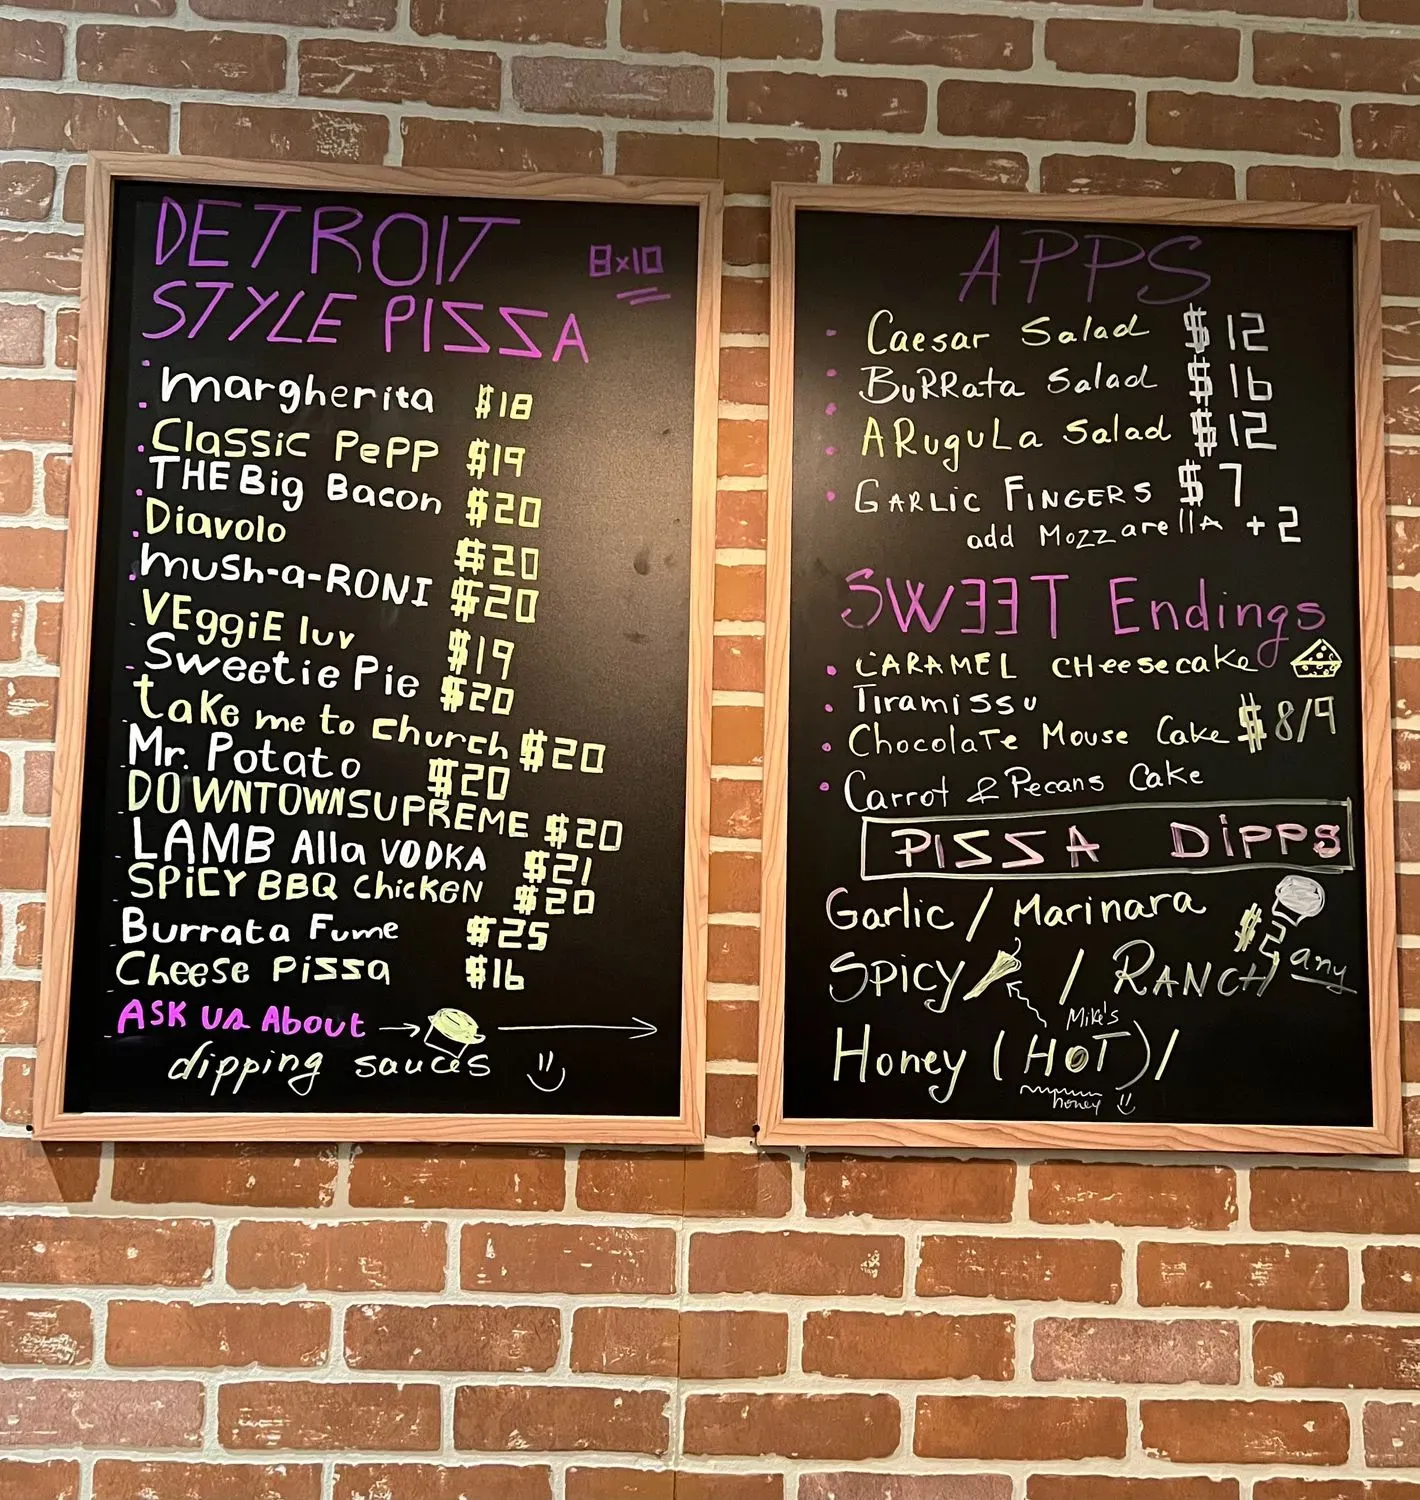 DETROIT
STYLE PISSA
8x10
Margherita $18
Classic PePP $19
THE Big Bacon $20
Diavolo $20
mush-a-RONI $20
VEggiE luv $19
Sweetie Pie $20
take me to church $20
Mr. Potato $20
DOWNTOWN SUPREME $20
LAMB Alla VODKA $21
SPiCY BBQ ChickEN $20
Burrata Fume $25
Cheese Pissa $16
ASK US About
dipping sauces
APPS
Caesar Salad $12
BuRRata Salad $16
ARuguLa Salad $12
GARLIC FINGERS $7
add MozzarellA +2
SWEET Endings
CARAMEL CHeesecake
Tiramissu
Chocolate Mouse Cake $8/9
Carrot & Pecans Cake
PISSA DiPPS
Garlic / Marinara
$2 any
SPICY / RANCH
Mike's
Honey (HOT) /
honey